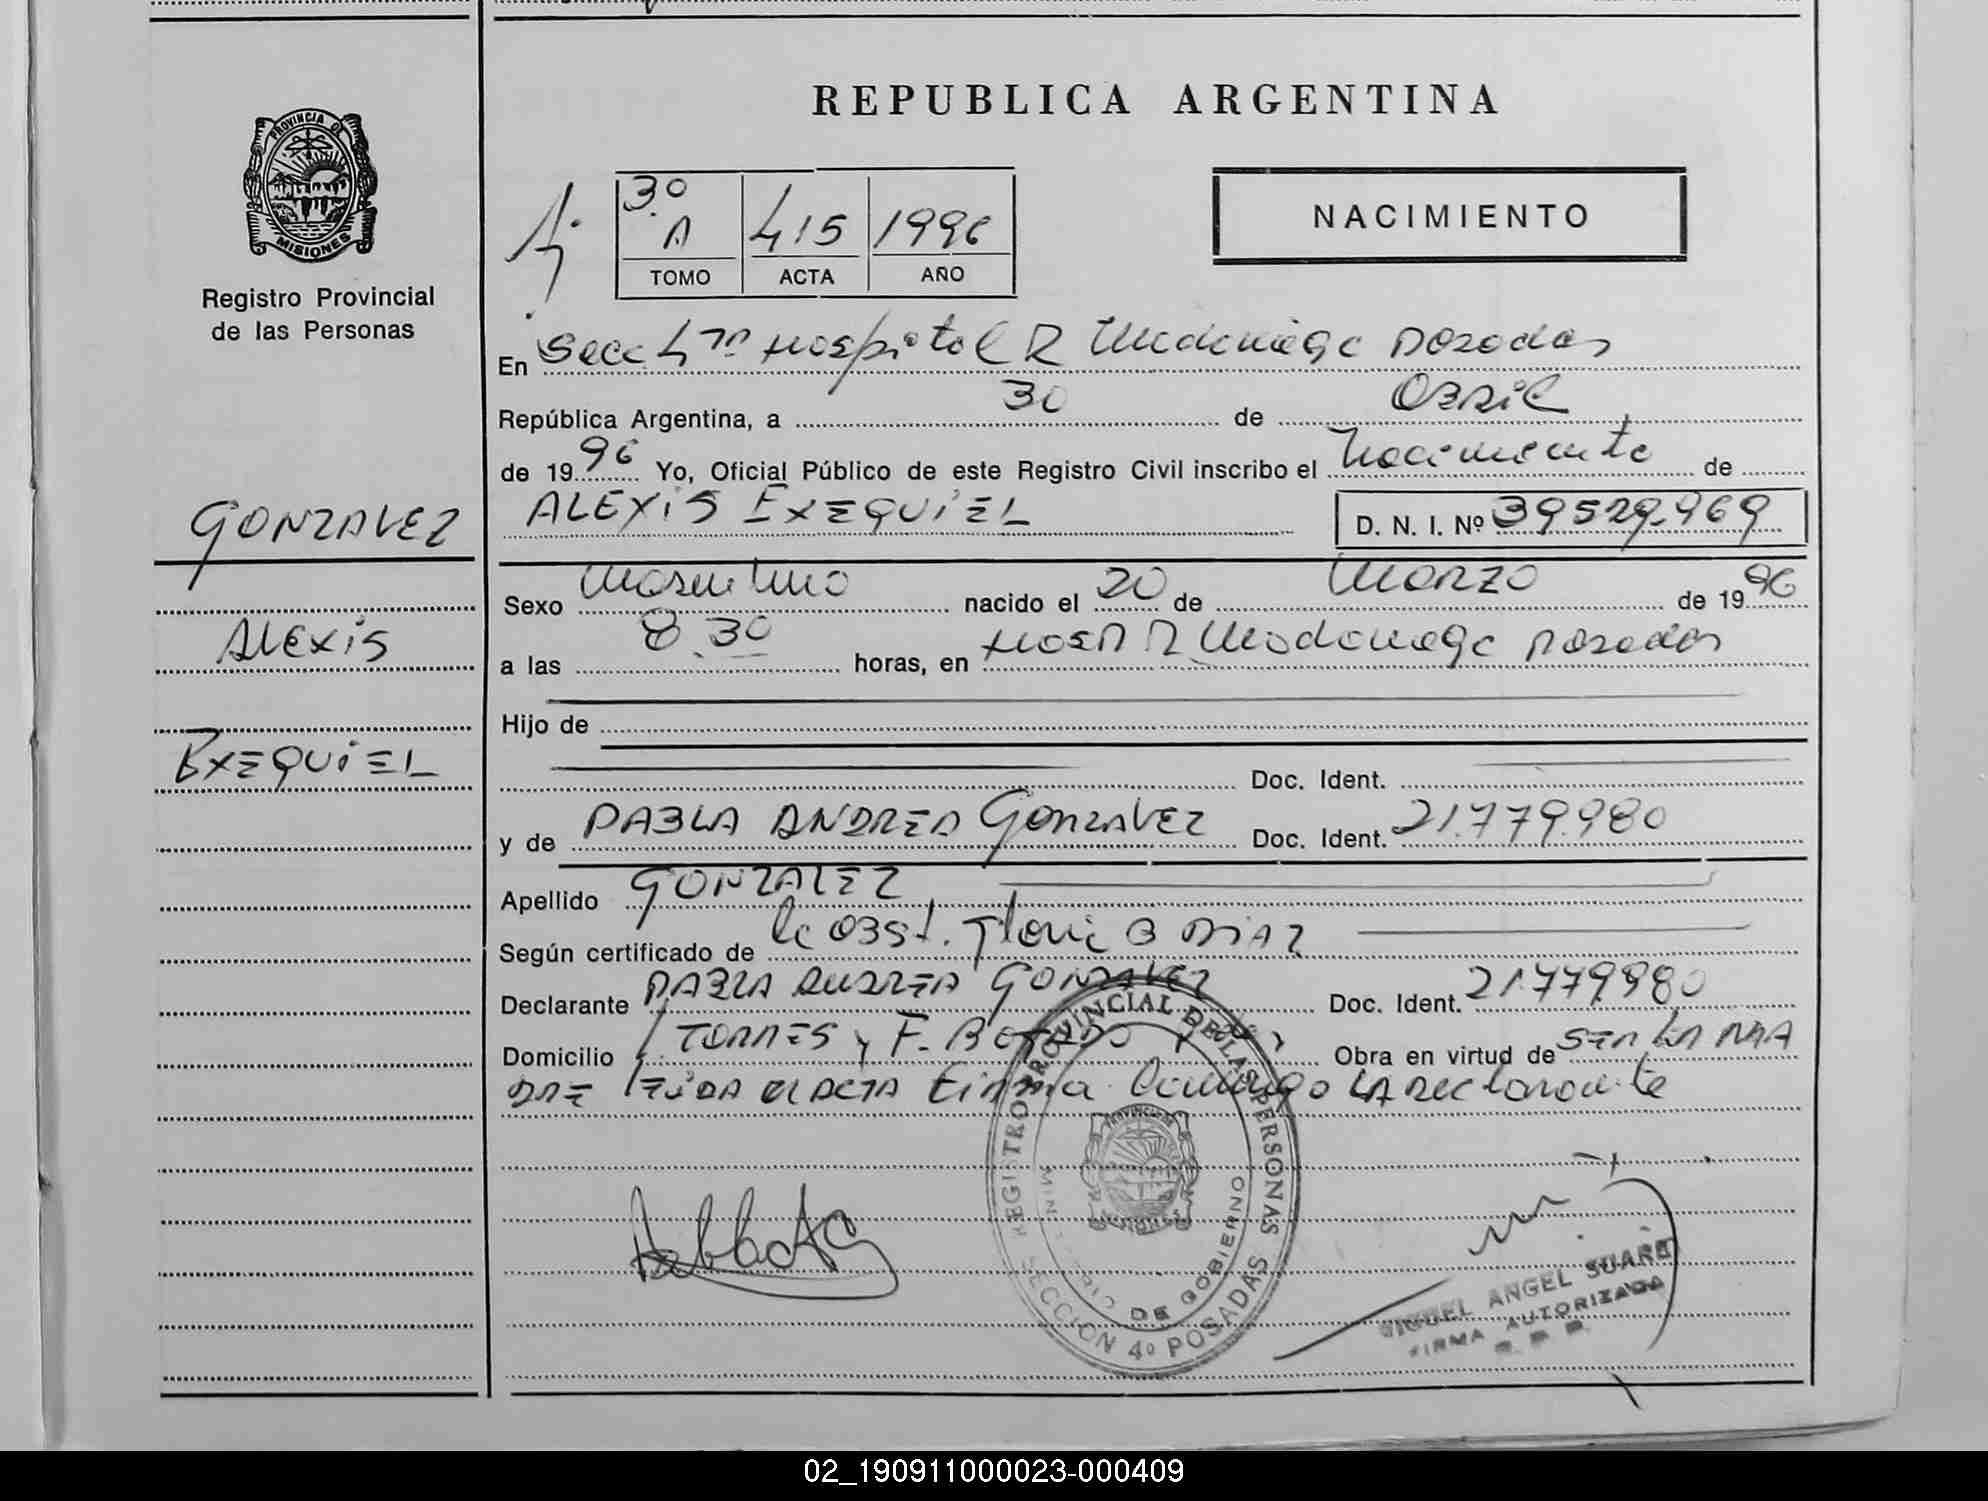 REPUBLICA ARGENTINA
PROVINCIA DE
MISIONES
Registro Provincial
de las Personas
3º
A 415 1996
TOMO ACTA AÑO
NACIMIENTO
En Secc 4ta Hospital R Madariaga Posadas
República Argentina, a 30 de Abril
de 1996 Yo, Oficial Público de este Registro Civil inscribo el Nacimiento de
GONZALEZ
ALEXIS EXEQUIEL D. N. I. Nº 39529.969
Sexo Masculino nacido el 20 de Marzo de 1996
ALEXIS
a las 8.30 horas, en Hosp R Madariaga Posadas
Hijo de
EXEQUIEL
Doc. Ident.
y de PABLA ANDREA GONZALEZ Doc. Ident. 21.779.980
Apellido GONZALEZ
Según certificado de la Obst. B DIAZ
Declarante PABLA ANDREA GONZALEZ Doc. Ident. 21.779.980
Domicilio TORRES y F. Obra en virtud de SER LA MA
DRE leida el ACTA Firma Conmigo LA Declarante
REGISTRO PROVINCIAL DE LAS PERSONAS
MINISTERIO DE GOBIERNO
PROVINCIA DE
MISIONES
SECCION 4º POSADAS
MIGUEL ANGEL SUAREZ
FIRMA AUTORIZADA
R. P. P.
02_190911000023-000409